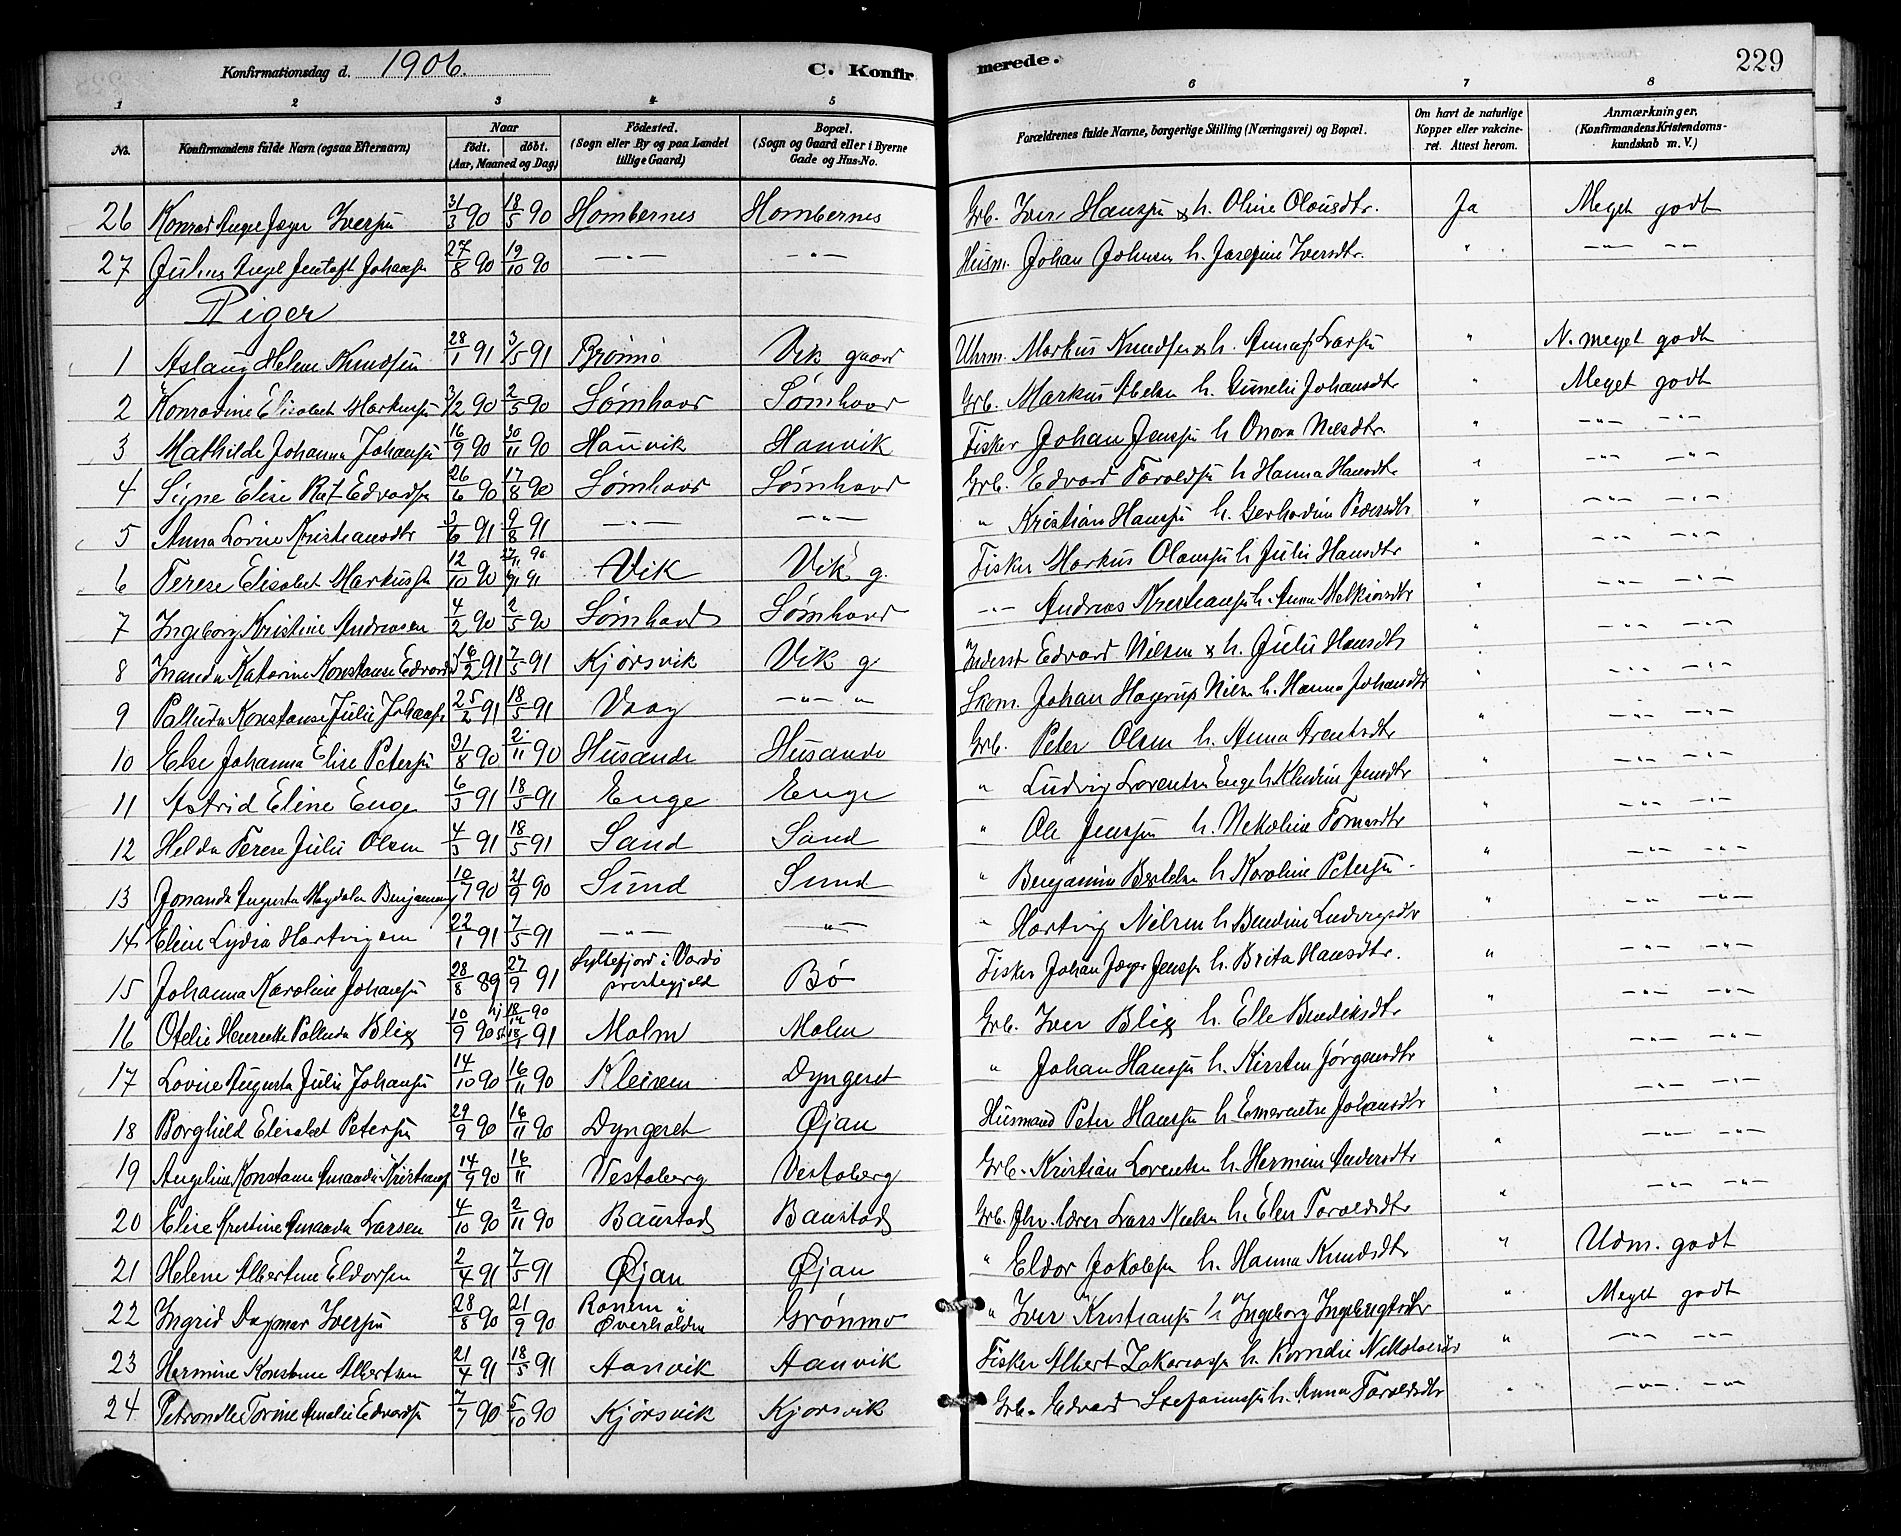 Konfirmationsdag d. 1906. C. Konfirmerede. 229
1 2 3 4 5 6 7 8
No. Konfirmandens fulde Navn (ogsaa Efternavn) Naar födt. döbt. (Aar, Maaned og Dag) Födested. (Sogn eller By og paa Landet tillige Gaard) Bopæl. (Sogn og Gaard eller i Byerne Gade og Hus-No. Forældrenes fulde Navne, borgerlige Stilling (Næringsvei) og Bopæl. Om havt de naturlige Kopper eller vakcineret. Attest herom. Anmærkninger. (Konfirmandens Kristendomskundskab m. V.)
26 Konrad Angel Jæger Iversen 31/3 90 18/5 90 Hombernes Hombernes Grb. Iver Hansen & h. Oline Olausdtr. Ja Meget godt
27 Julius Angel Jentoft Johansen 27/8 90 19/10 90 —"— —"— Husm. Johan Johnsen h. Josefine Iversdtr. " —"— —"—
Piger
1 Aslaug Helene Knudsen 28/1 91 3/5 91 Brönnö Vik gaard Uhrm. Markus Knudsen & h. Anna Larsen " N. meget godt
2 Konradine Elisabet Markussen 3/2 90 2/5 90 Sömhovd Sömhovd Grb. Markus Abelsen h. Gunelie Johansdtr " Meget godt
3 Mathilde Johanna Johansen 16/9 90 30/11 90 Hanvik Hanvik Fisker Johan Jenssen h. Onora Nilsdtr. " —"— —"—
4 Signe Elise Edvardsen 26/6 90 17/8 90 Sömhovd Sömhovd Grb. Edvard Toroldsen h. Hanna Hansdtr " —"— —"—
5 Anna Lovise Kristiansdtr 3/6 91 9/8 91 —"— —"— " Kristian Hanssen h. Gerhardine Pedersdtr " —"— —"—
6 Terese Elisabet Markussen 12/10 90 27/11 90 91 Vik Vik g. Fisker Markus Olaussen h. Julie Hansdtr " —"— —"—
7 Ingeborg Kristine Andreasen 4/2 90 2/5 90 Sömhovd Sömhovd —"— Andreas Kristiansen h. Anna Melkiorsdtr " —"— —"—
8 Katarine Konstanse Edvards 16/2 91 7/5 91 Kjörsvik Vik g Inderst Edvard Nilsen & h. Julie Hansdtr " —"— —"—
9 Palluda Konstanse Julie Johansen 25/2 91 18/5 91 Vaag —"— " Skom. Johan Hagerup Nilsen h. Hanna Johansdtr " —"— —"—
10 Else Johanna Elise Petersen 31/8 90 2/11 90 Husande Husande Grb. Peter Olsen h. Anna Arentsdtr " —"— —"—
11 Astrid Eline Enge 6/3 91 18/5 91 Enge Enge " Ludvig Lorentsen Enge h. Jensdtr " —"— —"—
12 Helda Terese Julie Olsen 4/3 91 18/5 91 Sand Sand " Ole Jenssen h. Nekoline Tomasdtr " —"— —"—
13 Jonanda Augusta Magdalen Benjamins 10/7 90 21/9 90 Sund Sund " Benjamin Bertelsen h. Karoline Petersen " —"— —"—
14 Eline Lydia Hartvigsen 22/1 91 7/5 91 —"— —"— " Hartvig Nilsen h. Bendine Ludvigsdtr " —"— —"—
15 Johanna Karoline Johansen 28/8 89 27/9 91 Syltefjord i Vardö prestegjeld Bö Fisker Johan Jæger Jenssen h. Brita Hansdtr. " —"— —"—
16 Otelie Henriette Palluda Blix 10/9 90 18/ 90 91 Molm Molm Grb. Iver Blix h. Elle Bendiksdtr " —"— —"—
17 Lovise Augusta Julie Johansen 14/10 90 16/11 90 Kleiven Dyngeset " Johan Hanssen h. Kirsten Jörgensdtr " —"— —"—
18 Borghild Elisabet Petersen 29/9 90 16/11 90 Dyngeset Øjan Husmand Peter Hanssen h. Emerentse Johansdtr " —"— —"—
19 Angeline Konstanse Amanda Kristians 14/9 90 16/11 Vestaberg Vestaberg Grb. Kristian Lorentsen h. Hermine Andersdtr " —"— —"—
20 Elise Kristine Amanda Larsen 4/10 90 2/11 90 Baustad Baustad Grb. Lars Nielsen h. Elen Toroldsdtr " —"— —"—
21 Helene Albertine Eldorsen 2/4 91 7/5 91 Øjan Øjan " Eldor Jakobsen h. Hanna Knudsdtr " Udm. godt
22 Ingrid Dagmar Iversen 28/8 90 21/9 90 Ranem i Øverhalden Grönmo " Iver Kristiansen h. Ingeborg Ingebrigtsdtr " Meget godt
23 Hermine Konstanse Albertsen 21/4 91 18/5 91 Aanvik Aanvik Fisker Albert Zakariassen h. Kornelie " —"— —"—
24 Petronelle Torine Amalie Edvardsen 7/7 90 5/10 90 Kjörsvik Kjörsvik Grb. Edvard Stefanussen h. Anna Toroldsdtr " —"— —"—